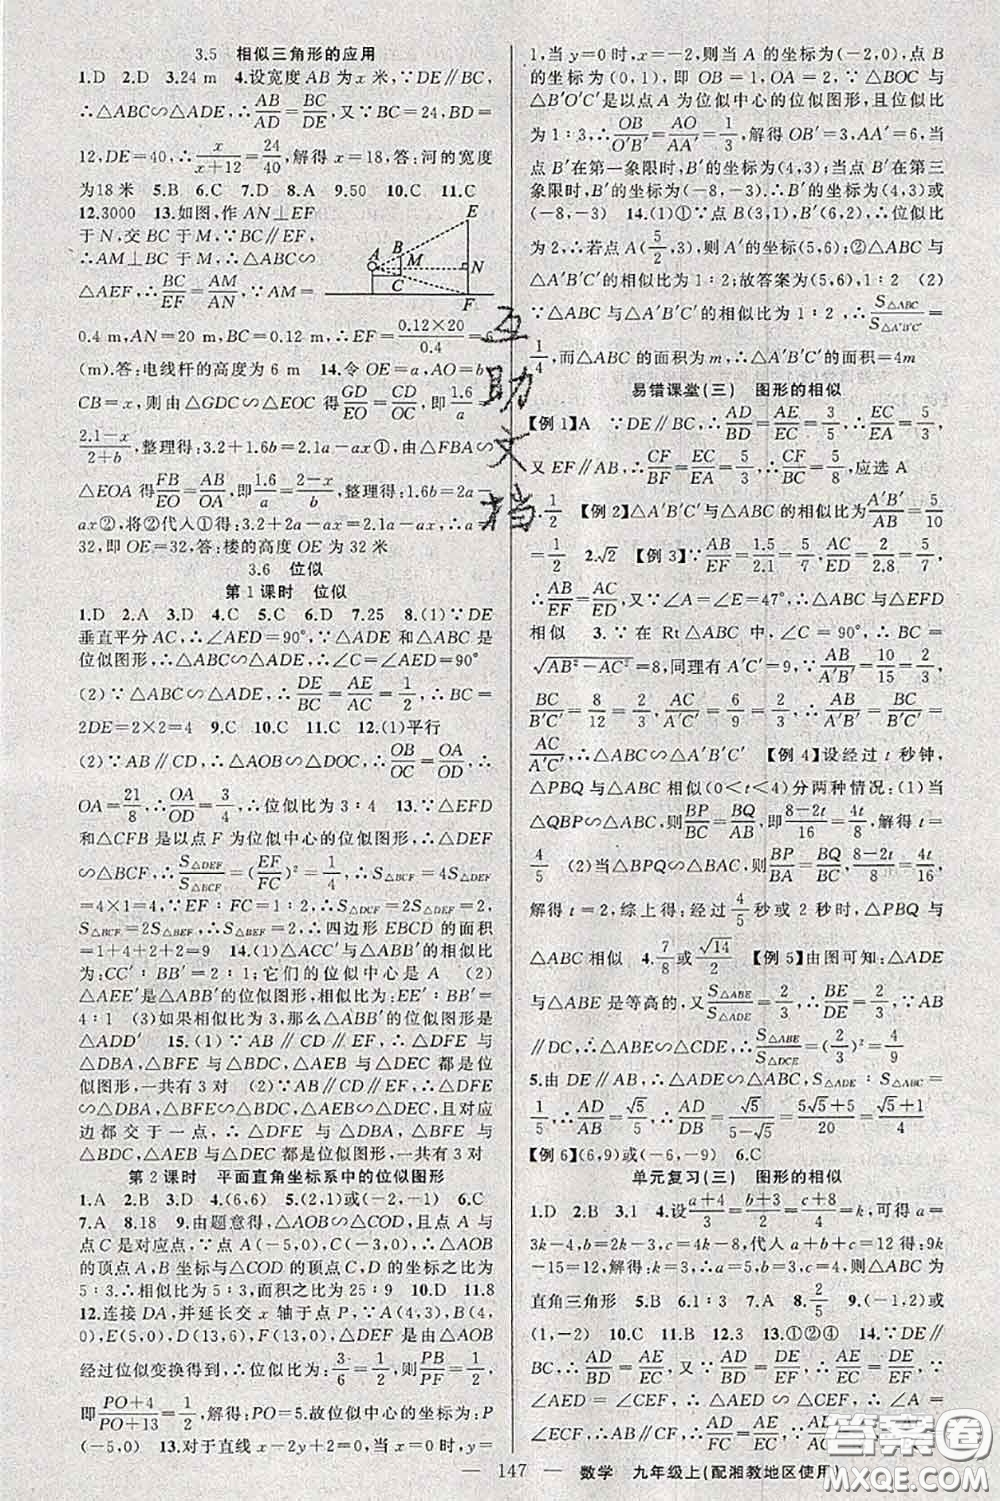 3.5 相似三角形的应用
1.D 2.D 3.24 m 4.设宽度 AB 为 x 米,∵DE∥BC,
∴△ABC∽△ADE,∴AB/AD=BC/DE,又∵BC=24,BD=
12,DE=40,∴x/(x+12)=24/40,解得 x=18,答:河的宽度
为18 米 5.B 6.C 7.D 8.A 9.50 10.C 11.C
12.3000 13.如图,作 AN⊥EF
于 N,交 BC 于 M,∵BC∥EF,
∴AM⊥BC 于 M,∴△ABC∽
△AEF,∴BC/EF=AM/AN,∵AM=
A B M C E N F
0.4 m,AN=20 m,BC=0.12 m,∴EF=(0.12×20)/0.4=6
(m).答:电线杆的高度为 6 m 14.令 OE=a,AO=b,
CB=x,则由△GDC∽△EOC 得GD/EO=CD/OC,即1.6/a=
(2.1-x)/(2+b),整理得:3.2+1.6b=2.1a-ax①,由△FBA∽
△EOA 得FB/EO=AB/OA,即1.6/a=(2-x)/b,整理得:1.6b=2a-
ax②,将②代人①得:3.2+2a-ax=2.1a-ax,∴a=
32,即 OE=32,答:楼的高度 OE 为 32 米
3.6 位似
第 1 课时 位似
1.D 2.A 3.D 4.C 5.C 6.D 7.25 8.(1)∵DE
垂直平分 AC,∴∠AED=90°,∵△ADE 和△ABC 是
位似图形,∴△ABC∽△ADE,∴∠C=∠AED=90°
(2)∵△ABC∽△ADE,∴DE/BC=AE/AC=1/2,∴BC=
2DE=2×2=4 9.C 10.C 11.C 12.(1)平行
(2)∵AB∥CD,∴△AOB∽△DOC,∴OB/OC=OA/OD,
OA=21/8,∴OA/OD=3/4,∴位似比为 3∶4 13.∵△EFD
和△CFB 是以点 F 为位似中心的位似图形,∴△DEF
∽△BCF,∴S△DEF/S△BCF=(EF/FC)²=1/4,∴S△BCF=4S△DEF
=4×1=4,∵EF∶FC=1∶2,∴S△DCF=2S△DEF=2,
S△BCF=2S△BEF,∴S△BEF=2,∴四边形 EBCD 的面积
=1+4+2+2=9 14.(1)△ACC′与△ABB′的相似比
为:CC′∶BB′=2∶1;它们的位似中心是 A (2)
△AEE′是△ABB′的位似图形,相似比为:EE′∶BB′=
4∶1 (3)如果相似比为 3,那么△ABB′的位似图形是
△ADD′ 15.(1)∵AB∥CD∥EF,∴△DFE 与
△DBA,△BFE 与△BDC,△AEB 与△DEC 都是位
似图形,一共有 3 对 (2)∵AB∥CD∥EF,∴△DFE
∽△DBA,△BFE∽△BDC,△AEB∽△DEC,且对应
边都交于一点,∴△DFE 与△DBA,△BFE 与
△BDC,△AEB 与△DEC 都是位似图形,一共有 3 对
第 2 课时 平面直角坐标系中的位似图形
1.A 2.B 3.D 4.(6,6) 5.(2,1)或(-2,-1) 6.C
7.A 8.18 9.由题意得,△AOB∽△COD,且点 A 与
点 C 是对应点,∵点 A(-5,0),C(3,0),∴△AOB
的顶点 A,B 坐标与△COD 的顶点 C,D 的坐标之比为
5∶3,∴相似比为 5∶3,面积之比为 25∶9 10.D 11.8
12.连接 DA,并延长交 x 轴于点 P,∵A(4,3),B(4,
0),D(13,6),E(13,0),△DEF 是由△AOB
经过位似变换得到,∴位似比为:3/6=1/2,则PB/PF=1/2,
即(PO+4)/(PO+13)=1/2,解得:PO=5.故位似中心的坐标为:P
(-5,0) 13.对于直线 x-2y+2=0,当 x=0 时,y=
1,当 y=0 时,x=-2,则点 A 的坐标为(-2,0),点 B
的坐标为(0,1),即 OB=1,OA=2,∵△BOC 与
△B′O′C′是以点 A 为位似中心的位似图形,且位似比
为 1∶3,∴OB/O′B′=AO/AA′=1/3,解得 OB′=3,AA′=6,当
点 B′在第一象限时,B′的坐标为(4,3);当点 B′在第三
象限时,B′的坐标为(-8,-3),∴B′的坐标为(4,3)或
(-8,-3) 14.(1)①∵点 B(3,1),B′(6,2),∴位似比
为 2,∴若点 A(5/2,3),则 A′的坐标(5,6);②△ABC 与
△A′B′C′的相似比为 1∶2;故答案为(5,6),1∶2 (2)
∵△ABC 与△A′B′C′的相似比为 1∶2,∴S△ABC/S△A′B′C′=
1/4,而△ABC 的面积为 m,∴△A′B′C′的面积=4m
易错课堂(三) 图形的相似
【例 1】A ∵DE∥BC,∴AD/BD=AE/EC=3/5,∴EC/EA=5/3,
又 EF∥AB,∴CF/BF=EC/EA=5/3,∴CF/BF=5/3,应选 A
1.1/2 【例 2】△A′B′C′与△ABC 的相似比为A′B′/AB=5/10
=1/2 2.√2 【例 3】∵AB/EF=1.5/2.1=5/7,AC/ED=2/2.8=5/7,
∴AB/EF=AC/ED,又∵∠A=∠E=47°,∴△ABC 与△EFD
相似 3.∵在 Rt△ABC 中,∠C=90°,∴BC=
√(AB²-AC²)=8,同理有 A′C′=9,∵AB/A′B′=10/15=2/3,
BC/B′C′=8/12=2/3,AC/A′C′=6/9=2/3,∴AB/A′B′=BC/B′C′=
AC/A′C′,∴△ABC∽△A′B′C′ 【例 4】设经过 t 秒钟,
△PBQ 与△ABC 相似(0<t<4)分两种情况:(1)当
△QBP∽△ABC,则BP/BC=BQ/AB,即(8-2t)/16=4t/8,解得 t=
4/5 (2)当△BPQ∽△BAC,则BP/BA=BQ/BC,(8-2t)/8=4t/16,
解得 t=2,综上得:经过4/5秒或 2 秒时,△PBQ 与
△ABC 相似 4.7/8或√14/2 【例 5】由图可知:△ADE
与△ABE 是等高的,又S△ABE/S△ADE=2/3,∴BE/DE=2/3,∵AB
∥DC,∴△ABE∽△CDE,∴S△ABE/S△DCE=(2/3)²=4/9
5.由 DE∥AB,∴△ADE∽△ABC,S△ADE∶S△ABC=
1/5,∴AD/AB=√5/5,∴AD/BD=√5/(5-√5)=(5√5+5)/20=(√5+1)/4
【例 6】(6,9)或(-6,-9) 6.C
单元复习(三) 图形的相似
1.D 2.B 3.1 4.设(a+4)/3=(b+3)/2=(c+8)/4=k,可得 a=
3k-4,b=2k-3,c=4k-8,代人 a+b+c=12 得:9k
-15=12,解得:k=3,∴a=5,b=3,c=4,则△ABC 为
直角三角形 5.B 6.1∶3 7.A 8.2/5 9.(-1,2)或
(1,-2) 10.C 11.B 12.3 13.①②④ 14.∵DE∥
BC,∴AD/BD=AE/EC,又∵AD/BD=AE/EF=DE/EF,∵
∠AED=∠CEF,∴△ADE∽△CEF,∴∠A=
互助文档
答案圈
MXQE.COM
— 147 — 数学 九年级上(配湘教地区使用)